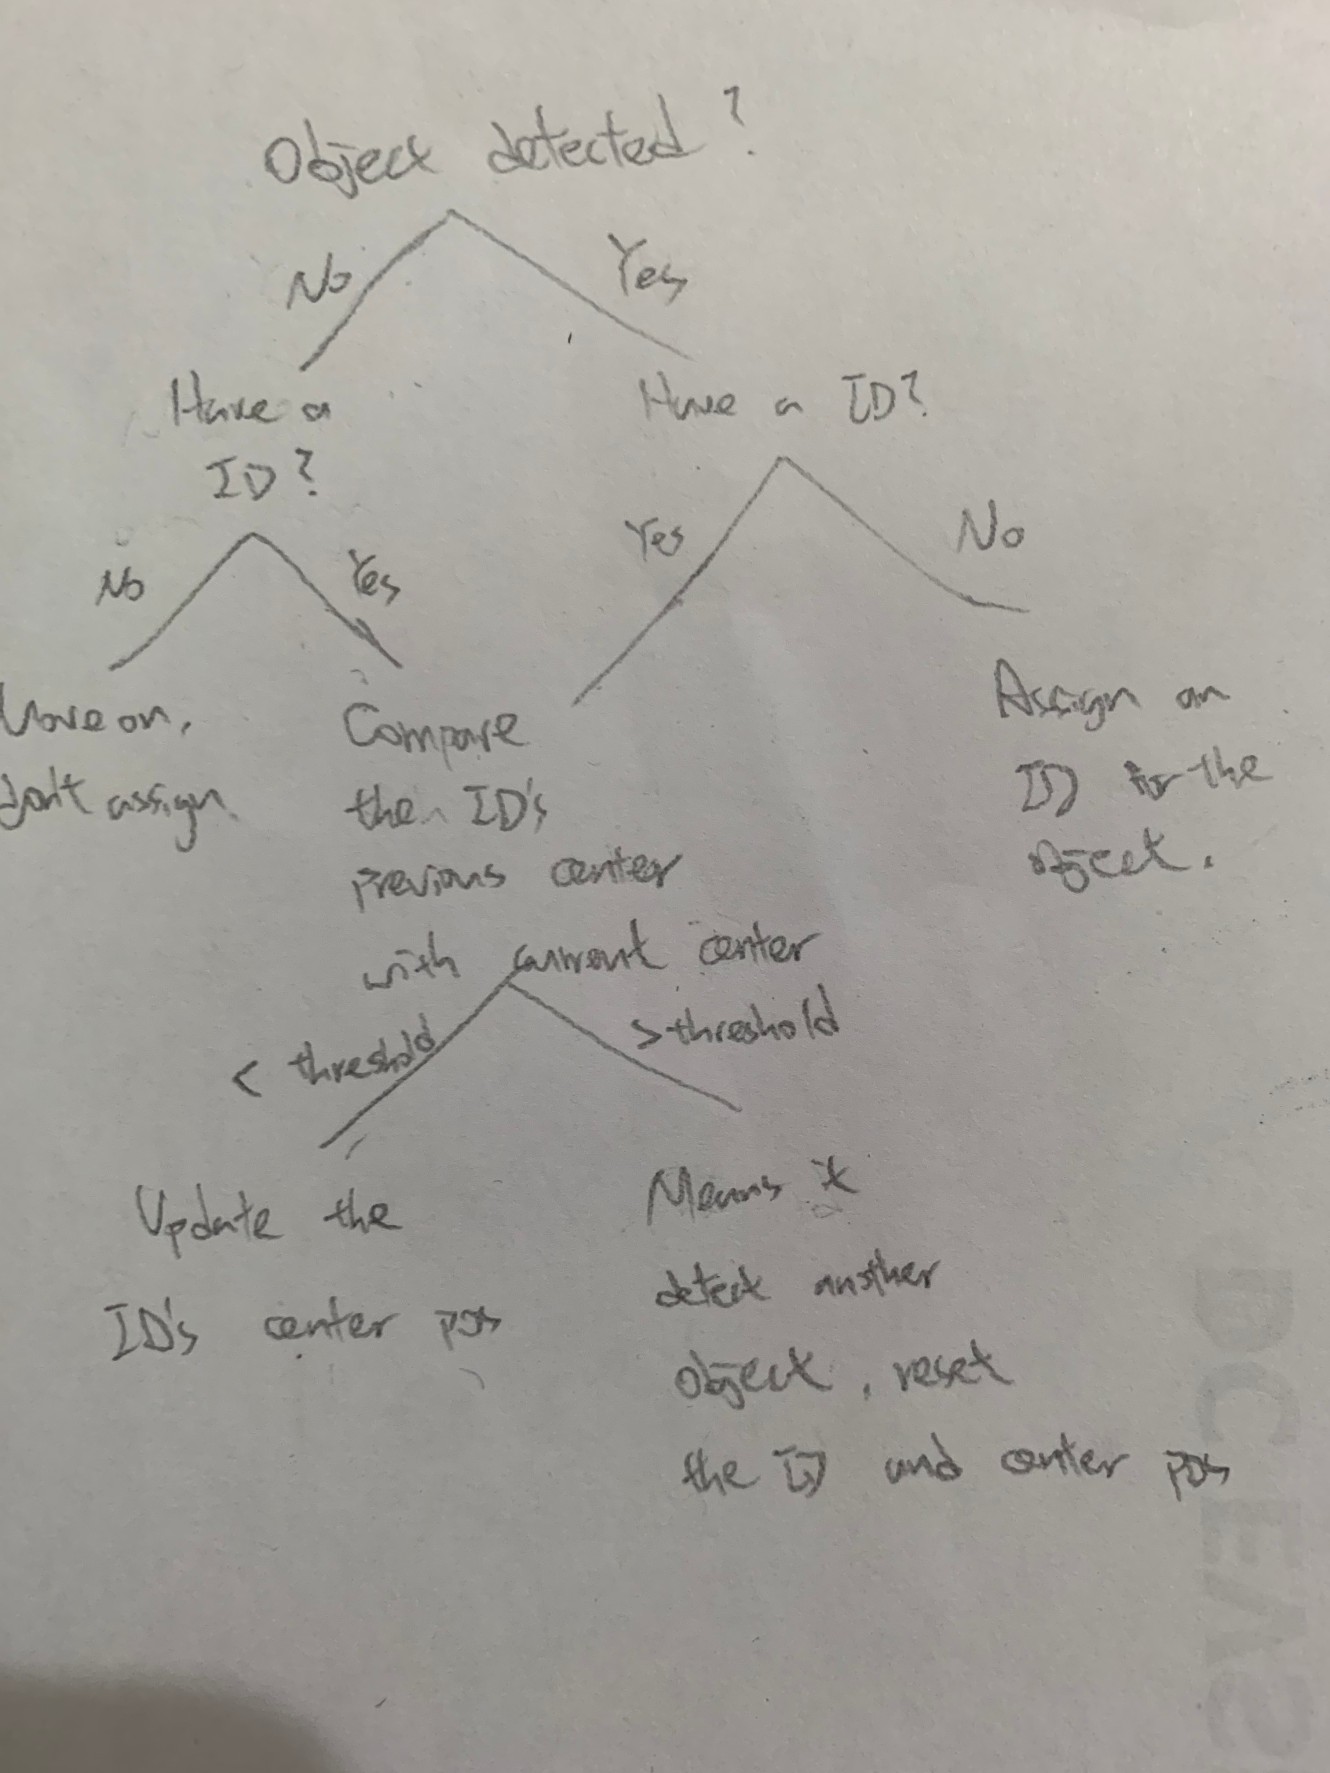 Object detected?
No
Yes
Have a
ID?
Have a ID?
No
Yes
Yes
No
Move on,
don't assign
Compare
the ID's
previous center
with current center
Assign an
ID for the
object.
< threshold
> threshold
Update the
ID's center pos
Means it
detect another
object, reset
the ID and center pos